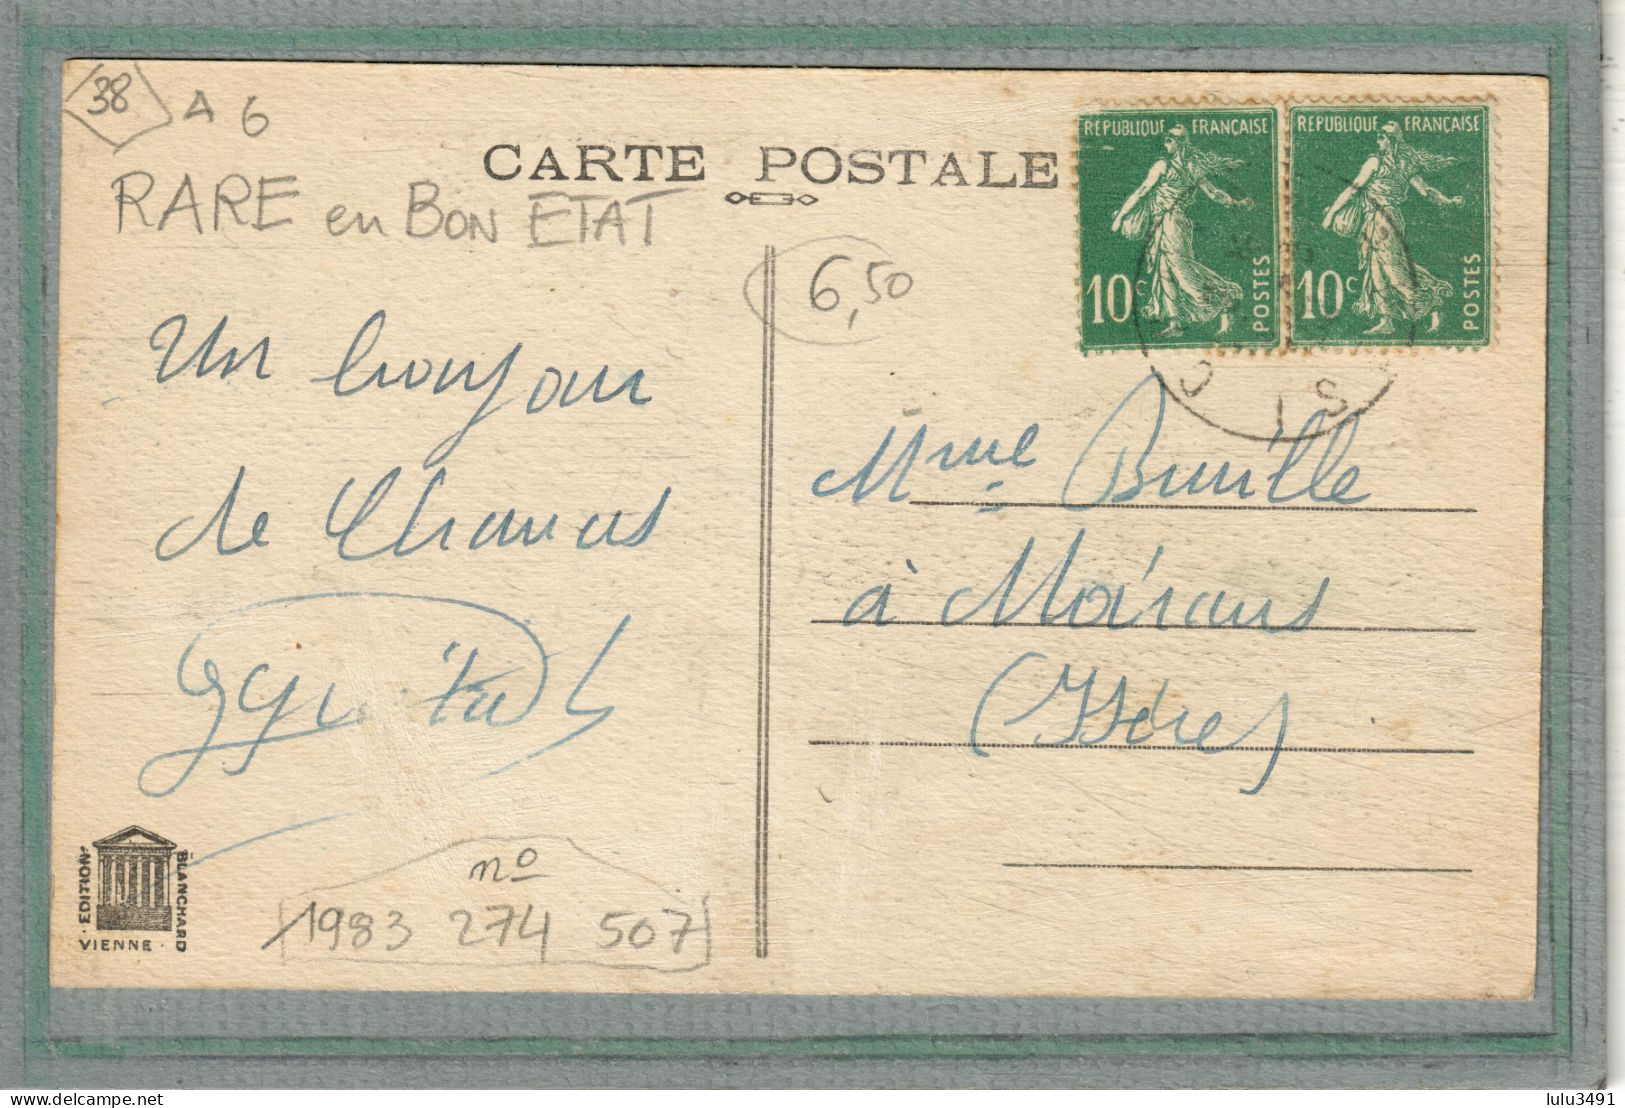 38
A 6
RARE en BON ETAT
CARTE POSTALE
REPUBLIQUE FRANÇAISE
10c
POSTES
REPUBLIQUE FRANÇAISE
10c
POSTES
6,50
Un bonjour
de Chanas
Mme Buville
à Moirans
(Isère)
EDITION
BLANCHARD
VIENNE
n°
1983 274 507
lulu3491